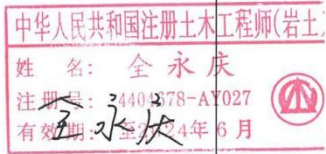 中华人民共和国注册土木工程师(岩土
姓 名: 全永庆
注册号: 4404678-AY027
有效期: 至2024年6月
全永庆